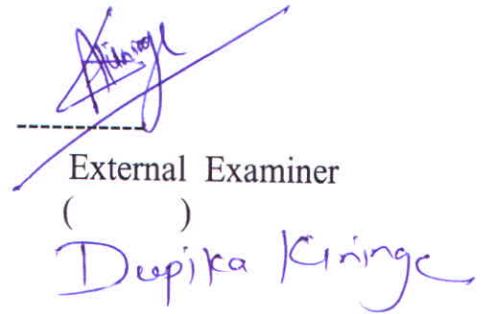 External Examiner
( )
Deepika Kininge